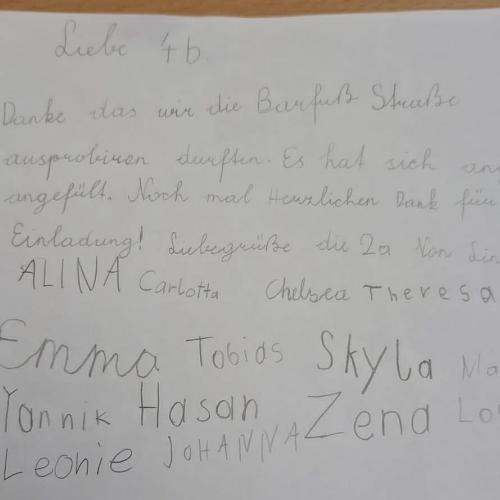 Liebe 4b
Danke das wir die Barfuß Straße
ausprobiren durften. Es hat sich
angefült. Noch mal Herzlichen Dank für
Einladung! Liebegrüße die 2a Von
ALINA Carlotta Chelsea Theresa
Emma Tobias Skyla
Yannik Hasan Zena
Leonie JOHANNA